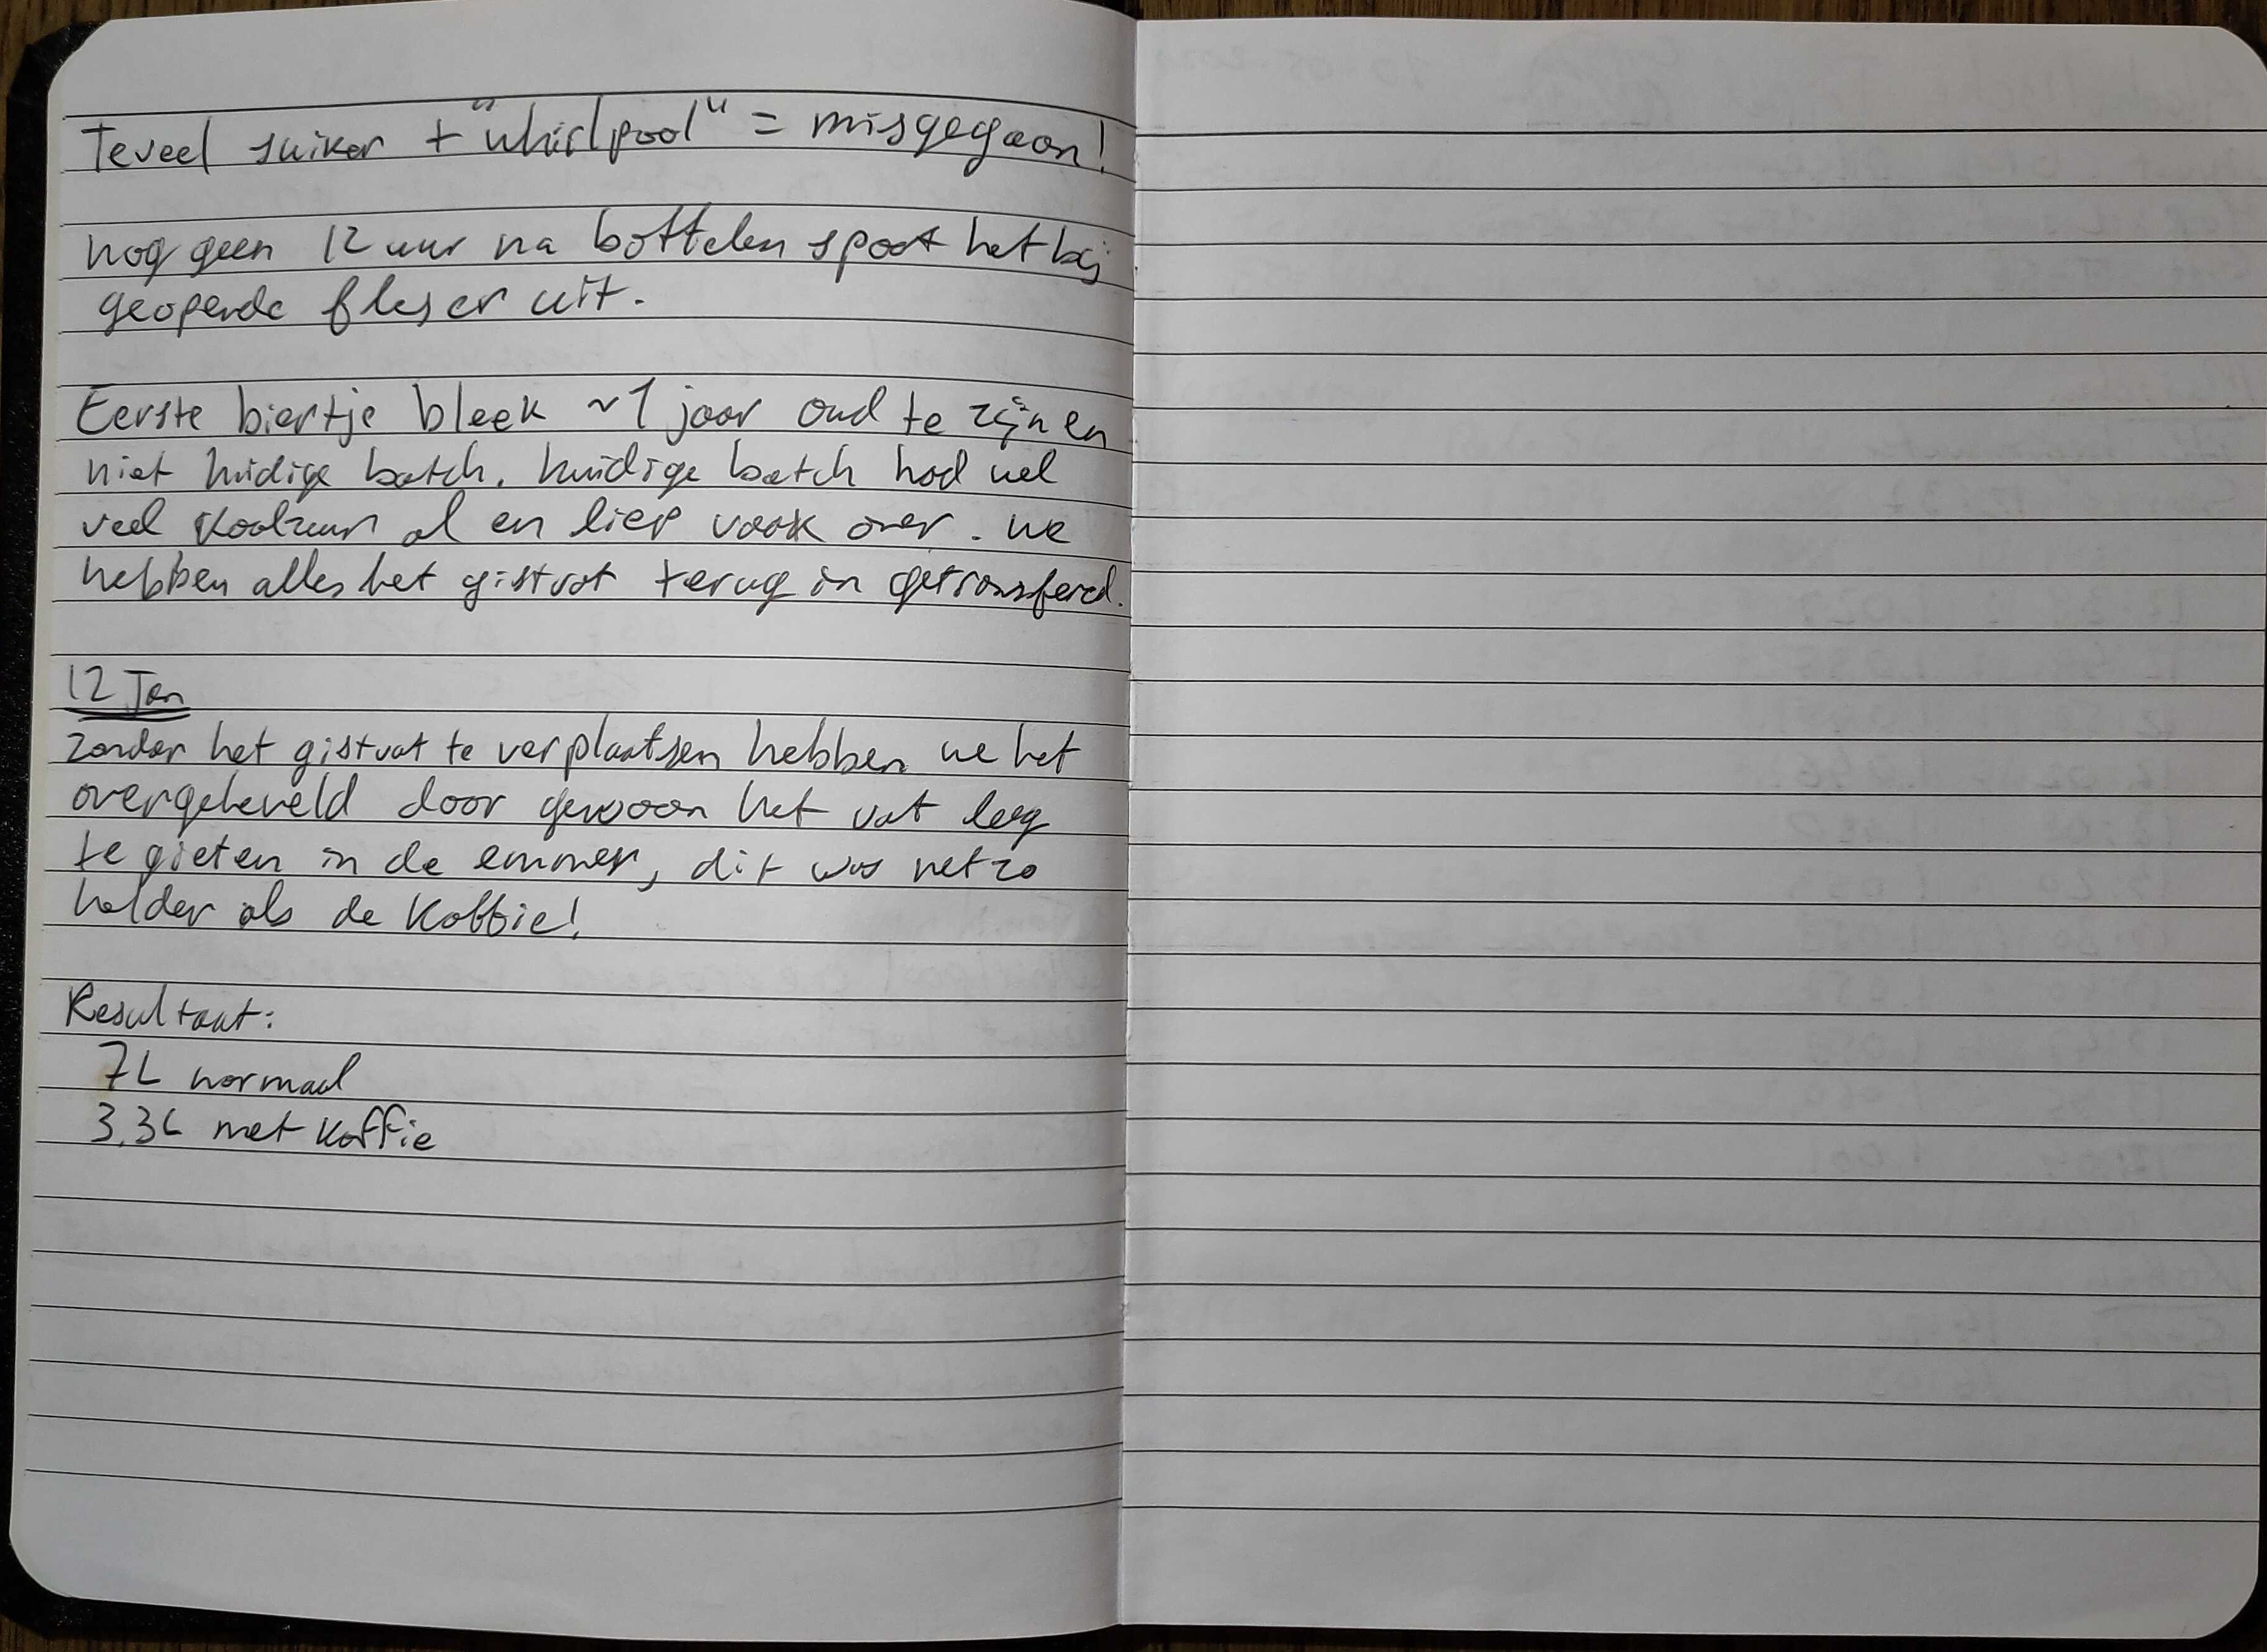 Teveel suiker + "whirlpool" = misgegaan!
nog geen 12 uur na bottelen spoot het bij
geopende fles er uit.
Eerste biertje bleek ~1 jaar oud te zijn en
niet huidige batch. huidige batch had wel
veel koolzuur al en liep vaak over. we
hebben alles het gistvat terug in getransfered.
12 Jan
zonder het gistvat te verplaatsen hebben we het
overgeheveld door gewoon het vat leeg
te gieten in de emmer, dit was net zo
helder als de koffie!
Resultaat:
7L normaal
3,3L met koffie